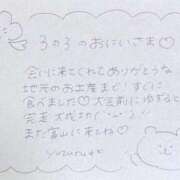 ろのろのおにいさま♡
会いに来てくれてありがとうな
地元のお土産まで！すぐに
食べました♡大会前にゆずると
完造大成功(´｡･v･｡`)
また富山に来てね♡
yuzuru